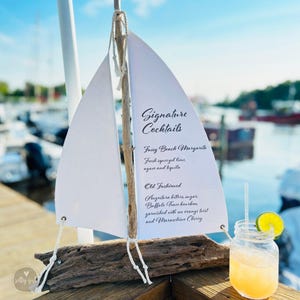 Signature
Cocktails
Foxy Beach Margarita
Fresh squeezed lime,
agave and tequila
Old Fashioned
Angostura bitters, sugar
Buffalo Trace bourbon,
garnished with an orange twist
and Maraschino Cherry